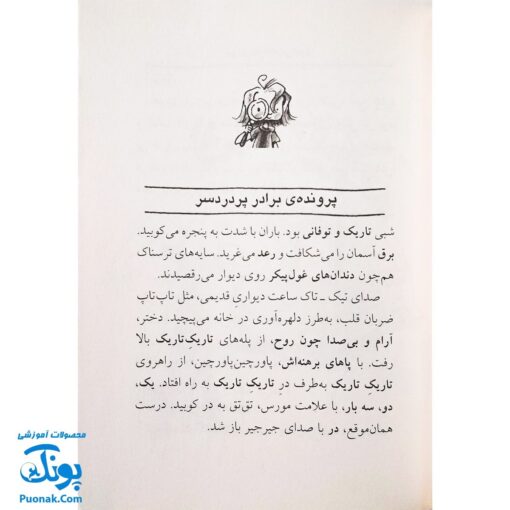 پرونده‌ی برادر پردردسر
شبی تاریک و توفانی بود. باران با شدت به پنجره می‌کوبید.
برق آسمان را می‌شکافت و رعد می‌غرید. سایه‌های ترسناک
هم‌چون دندان‌های غول‌پیکر روی دیوار می‌رقصیدند.
صدای تیک ـ تاک ساعت دیواریِ قدیمی، مثل تاپ‌تاپ
ضربان قلب، به‌طرز دلهره‌آوری در خانه می‌پیچید. دختر،
آرام و بی‌صدا چون روح، از پله‌های تاریکِ‌تاریک بالا
رفت. با پاهای برهنه‌اش، پاورچین‌پاورچین، از راهروی
تاریکِ تاریک به‌طرف درِ تاریکِ تاریک به راه افتاد. یک،
دو، سه بار، با علامت مورس، تق‌تق به در کوبید. درست
همان‌موقع، در با صدای جیرجیر باز شد.
محصولات آموزشی
پونک
Puonak.Com